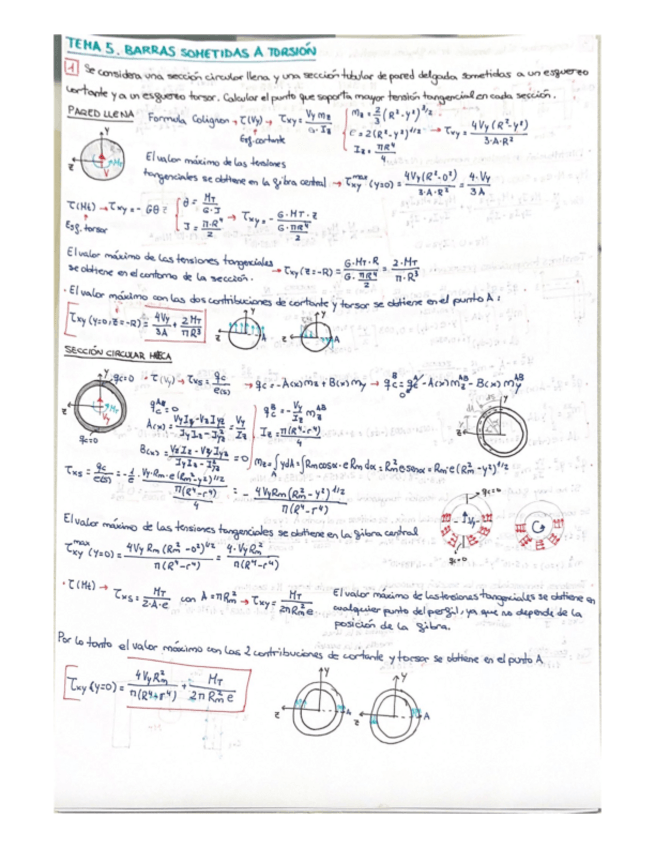 TEMA 5. BARRAS SOMETIDAS A TORSIÓN
1 Se considera una sección circular llena y una sección tubular de pared delgada sometidas a un esfuerzo
cortante y a un esfuerzo torsor. Calcular el punto que soporta mayor tensión tangencial en cada sección.
PARED LLENA
Formula Colignon → τ(Vy) → τxy = Vy mz / e · Iz
mz = 2/3 (R² - y²)^3/2
e = 2(R² - y²)^1/2
Iz = πR⁴/4
→ τxy = 4Vy(R² - y²) / 3·A·R²
Esf. cortante
El valor máximo de las tensiones
tangenciales se obtiene en la fibra central → τxy^max (y=0) = 4Vy(R² - 0²) / 3·A·R² = 4·Vy / 3A
τ(Mt) → τxy = - Gθz
θ = MT / G·J
J = π·R⁴ / 2
→ τxy = - G·MT·z / G·πR⁴/2
Esf. torsor
El valor máximo de las tensiones tangenciales
se obtiene en el contorno de la sección. → τxy (z=-R) = G·MT·R / G·πR⁴/2 = 2·MT / π·R³
· El valor máximo con las dos contribuciones de cortante y torsor se obtiene en el punto A:
τxy (y=0, z=-R) = 4Vy/3A + 2MT/πR³
SECCIÓN CIRCULAR HUECA
qc=0 · τ(Vy) → τxs = qc/e(s) → qc = -A(x)mz + B(x)my → qc^B = qc^A - A(x)mz^AB - B(x)my^AB
qc^A = 0
A(x) = VyIy - VzIyz / IyIz - Iyz² = Vy/Iz
B(x) = VzIz - VyIyz / IyIz - Iyz² = 0
qc^B = - Vy/Iz mz^AB
Iz = π(R⁴-r⁴)/4
mz = ∫ ydA = ∫ Rm cosα · e Rm dα = Rm² e senα = Rm·e (Rm² - y²)^1/2
qc=0
τxs = qc/e(s) = - 1/e · Vy·Rm·e(Rm² - y²)^1/2 / π(R⁴-r⁴)/4 = - 4VyRm(Rm² - y²)^1/2 / π(R⁴-r⁴)
El valor máximo de las tensiones tangenciales se obtiene en la fibra central
τxy^max (y=0) = 4Vy Rm (Rm² - 0²)^1/2 / π(R⁴-r⁴) = 4·VyRm² / π(R⁴-r⁴)
· τ(Mt) → τxs = MT / 2·A·e con A = πRm² → τxy = MT / 2πRm² e
El valor máximo de las tensiones tangenciales se obtiene en
cualquier punto del perfil, ya que no depende de la
posición de la fibra.
Por lo tanto el valor máximo con las 2 contribuciones de cortante y torsor se obtiene en el punto A
τxy (y=0) = 4VyRm² / π(R⁴+r⁴) + MT / 2πRm² e